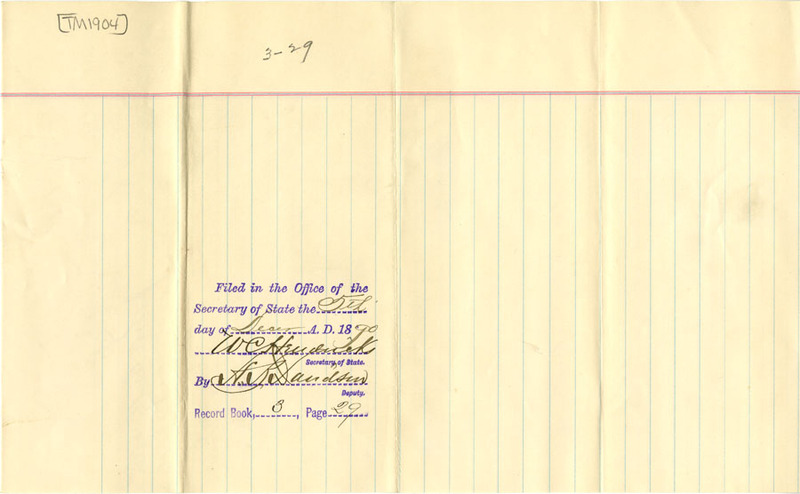 [TM1904]
3-29
Filed in the Office of the
Secretary of State the 5th
day of Decer A. D. 1890
W C Hendricks
Secretary of State.
By
Deputy.
Record Book, 3, Page 29